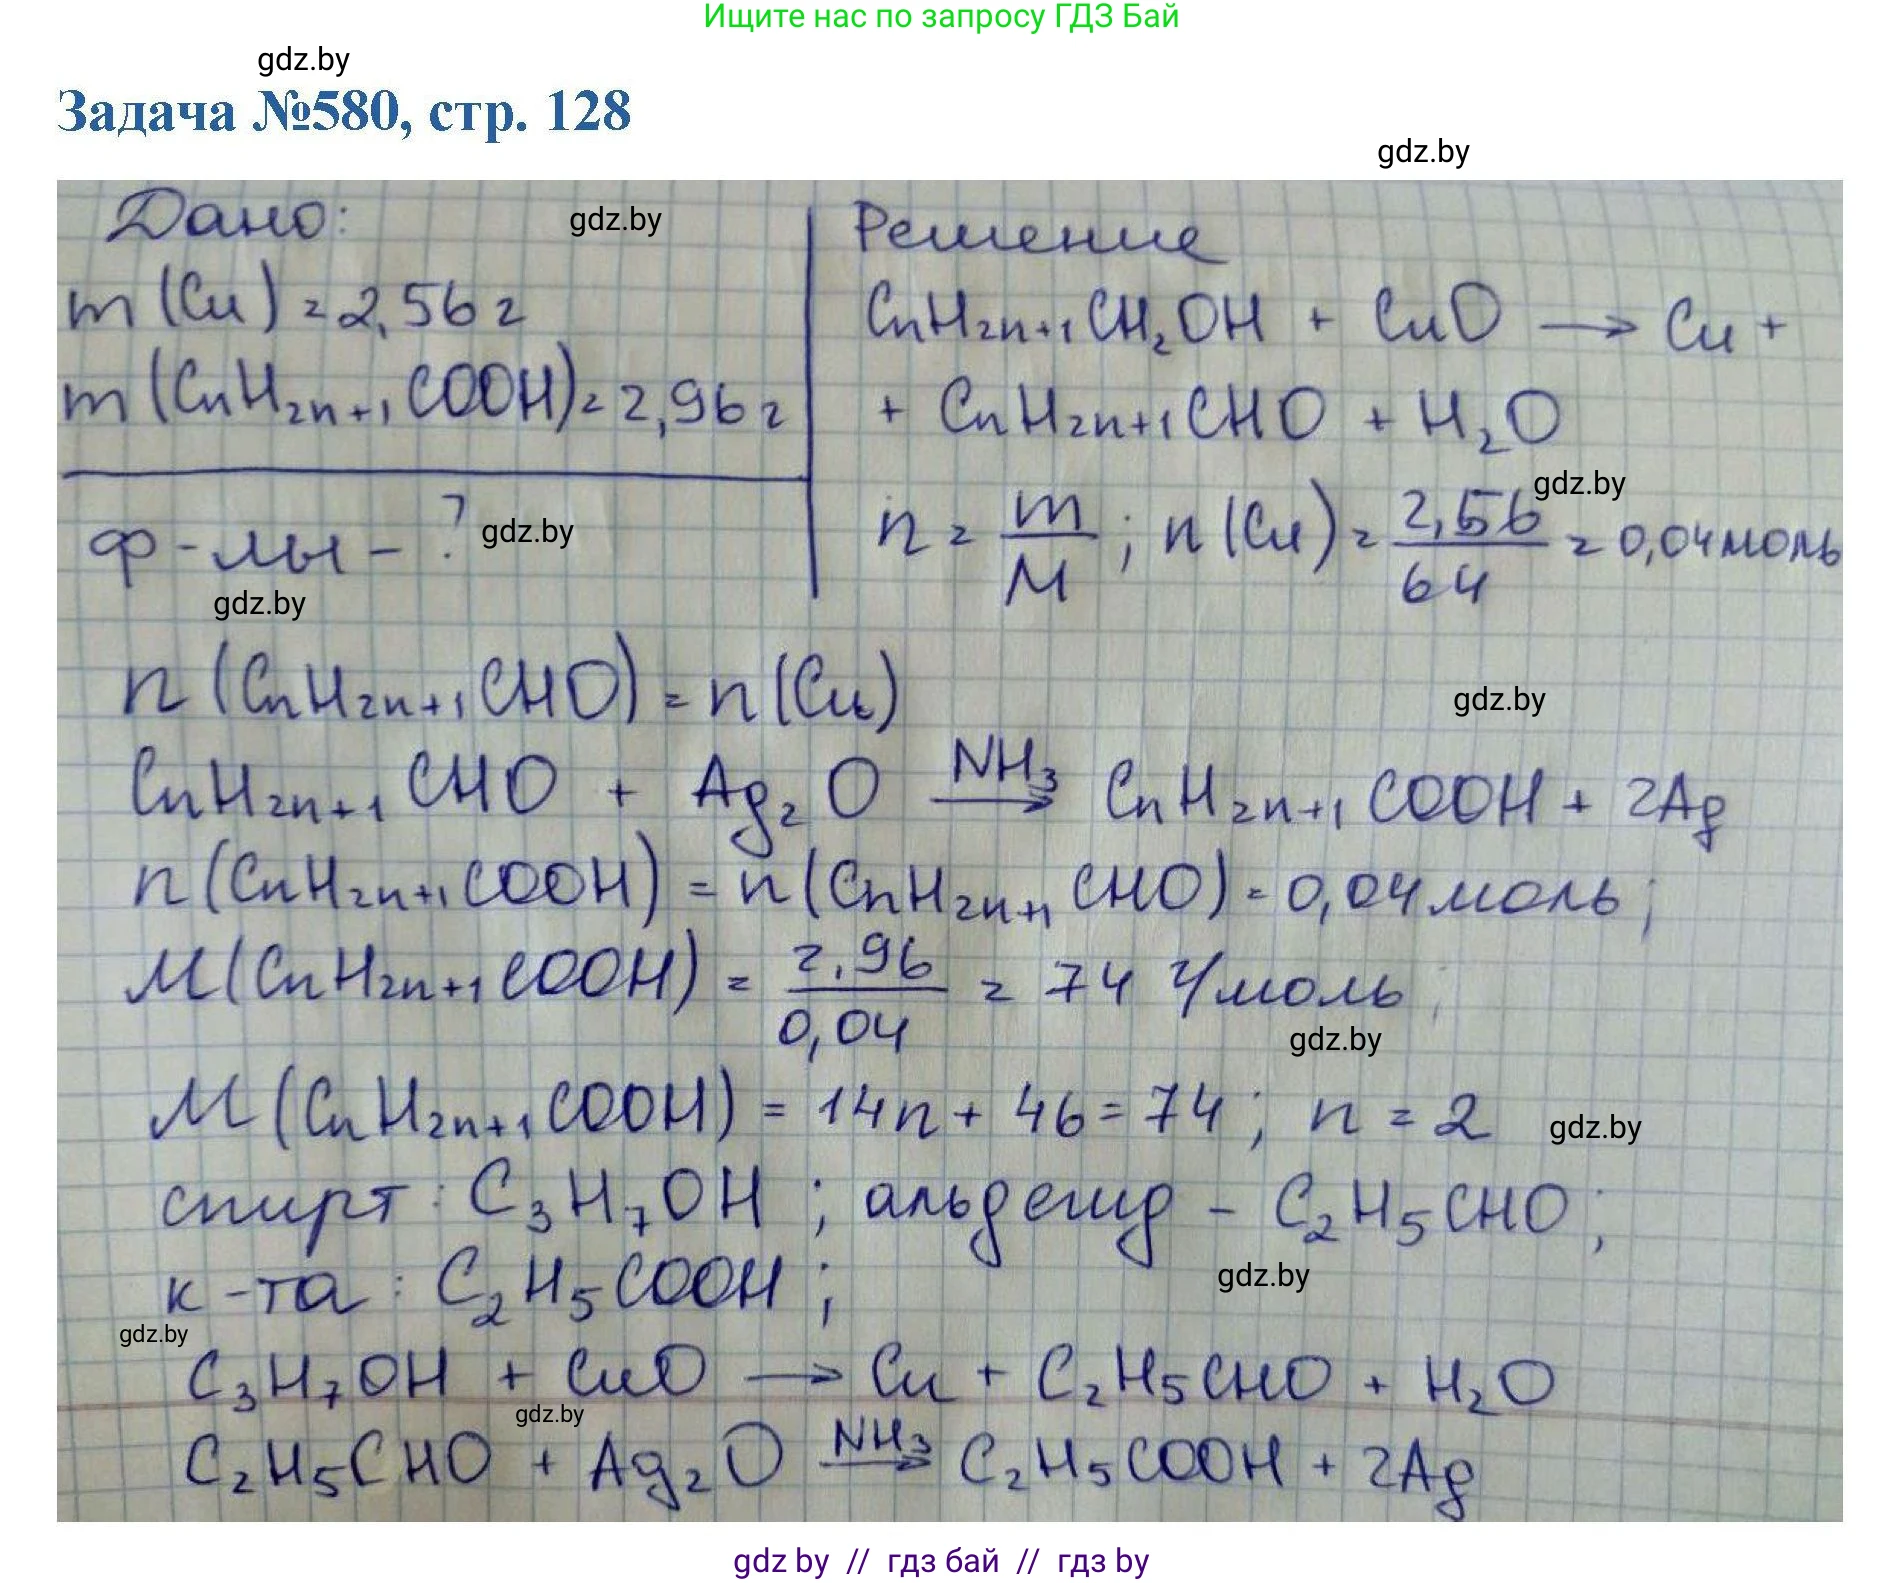 Ищите нас по запросу ГДЗ Бай
gdz.by
Задача №580, стр. 128
gdz.by
Дано:
gdz.by
m(Cu) = 2,56 г
m(CnH2n+1COOH) = 2,96 г
ф-лы - ?
gdz.by
gdz.by
Решение
CnH2n+1CH2OH + CuO → Cu +
+ CnH2n+1CHO + H2O
gdz.by
n = m/M; n(Cu) = 2,56/64 = 0,04 моль
n(CnH2n+1CHO) = n(Cu)
gdz.by
CnH2n+1CHO + Ag2O NH3→ CnH2n+1COOH + 2Ag
n(CnH2n+1COOH) = n(CnH2n+1CHO) = 0,04 моль;
M(CnH2n+1COOH) = 2,96/0,04 = 74 г/моль;
gdz.by
M(CnH2n+1COOH) = 14n + 46 = 74; n = 2
gdz.by
спирт: C3H7OH; альдегид - C2H5CHO;
gdz.by
к-та: C2H5COOH;
gdz.by
C3H7OH + CuO → Cu + C2H5CHO + H2O
gdz.by
C2H5CHO + Ag2O NH3→ C2H5COOH + 2Ag
gdz by // гдз бай // гдз by